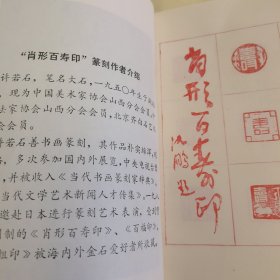 “肖形百寿印”篆刻作者介绍
许若石，笔名大石，一九五〇年生于
现为中国美术家协会山西分会会员
法家协会山西分会会员，北京齐白石艺
会会员。
许若石善书画篆刻，其作品朴实雄浑
多次参加国内外展览，中央电视台
并被收入《当代书画篆刻家辞典》
当代文学艺术新闻人才传集》。一九
邀赴日本进行篆刻艺术表演，受到
创制的《肖形百寿印》、《百福印》
被海内外金石爱好者所收藏
肖形百寿印
沈鹏题